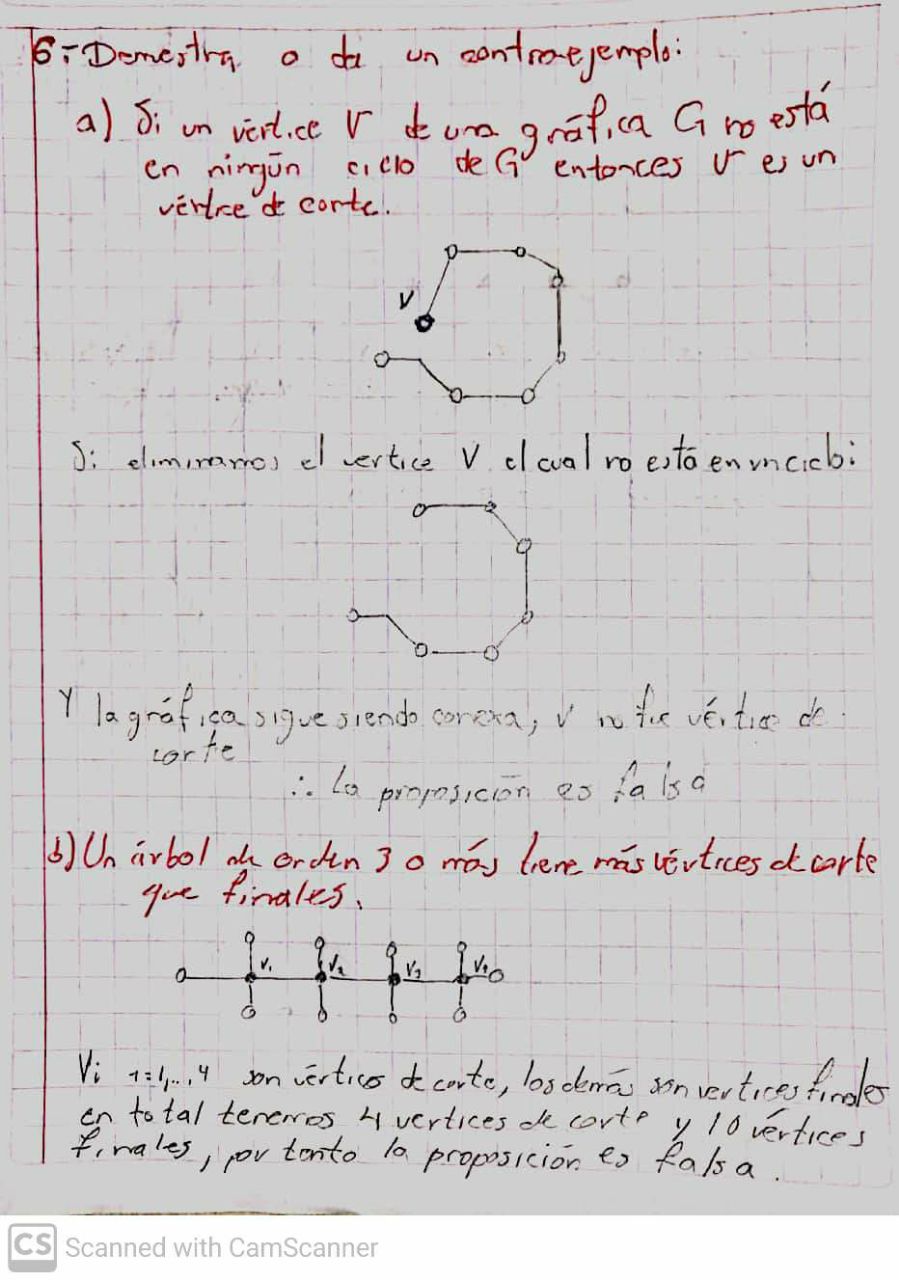 6.- Demestra o da un contraejemplo:
a) Si un vértice V de una gráfica G no está
en ningún ciclo de G entonces V es un
vértice de corte.
V
Si eliminamos el vertice V el cual no está en un ciclo:
Y la gráfica sigue siendo conexa, V no fue vértice de
corte
∴ La proposición es falsa
b) Un árbol de orden 3 o más tiene más vértices de corte
que finales.
V₁ V₂ V₃ V₄
Vi i=1,...,4 son vértices de corte, los demás son vertices finales
en total tenemos 4 vertices de corte y 10 vértices
finales, por tanto la proposición es falsa.
CS Scanned with CamScanner